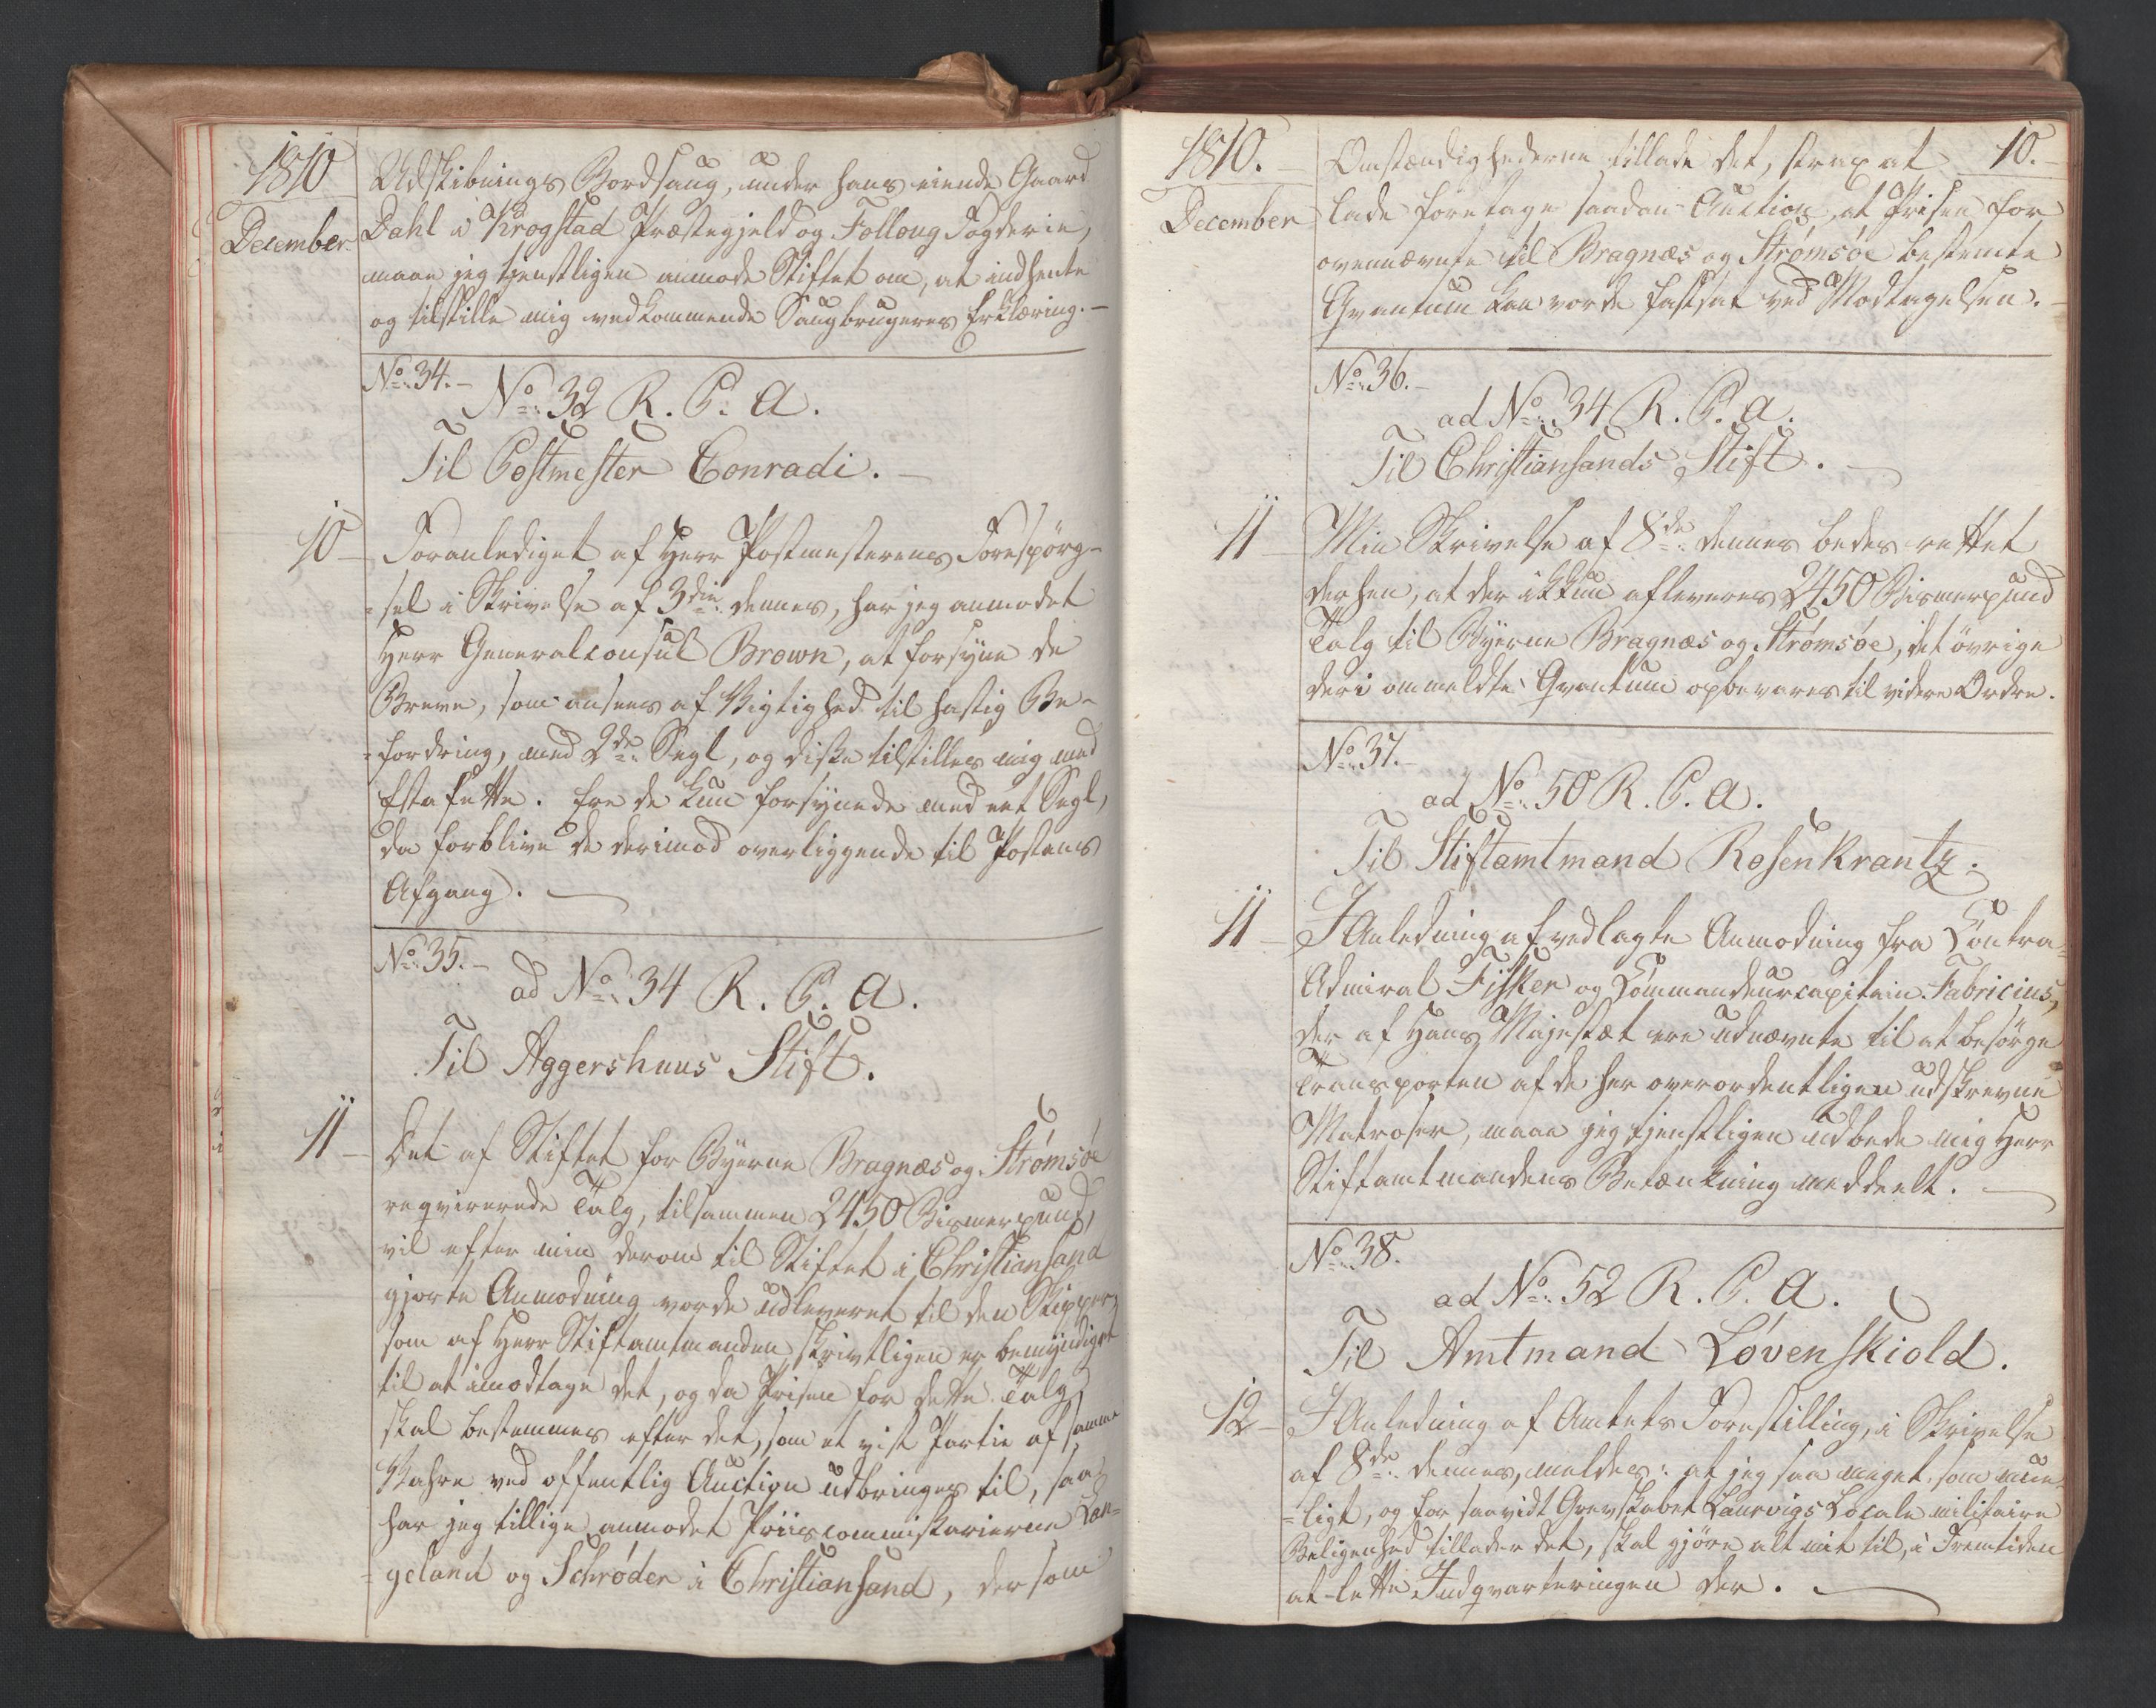 1810
December
Udskibnings Bordsaug, under hans eiende Gaard
Dahl i Krogstad Præstegjeld og Folloug Fogderie,
maae jeg tjenstligen anmode Stiftet om, at indhente
og tilstille mig vedkommende Saugbrugeres Erklæring.-
No. 34.-
No. 32 R. C. A.
Til Postmester Conradi.-
10-
Foranlediget af Herr Postmesterens Forespörg-
=sel i Skrivelse af 3die dennes, har jeg anmodet
Herr Generalconsul Brown, at forsyne de
Breve, som ansees af Vigtighed til hastig Be-
=fordring, med 2de Segl, og diske tilstilles mig med
Estafette. Ere de kun forsynede med eet Segl,
da forblive de derimod overliggende til Postens
Afgang.
No. 35.-
ad No. 34 R. C. A.
Til Aggershuus Stift.
11-
Det af Stiftet for Byerne Bragnæs og Strømsøe
reqvirerede Talg, tilsammen 2450 Bismerpund,
vil efter min derom til Stiftet i Christiansand
gjorte Anmodning vorde udleveret til den Skipper,
som af Herr Stiftamtmanden skrivtligen er bemyndiget
til at imodtage det, og da Prisen for dette Talg
skal bestemmes efter det, som et vist Partie af samme
Vahre ved offentlig Auction udbringes til, saa
har jeg tillige anmodet Priiscommissarierne Lan-
=geland og Schrøder i Christiansand, dersom
1810.
December
10.-
Omstændighederne tillade det, strax at
lade foretage saadan Auction, at Prisen for
ovennævnte til Bragnæs og Strømsøe bestemte
Qvantum kan vorde fastsat ved Modtagelsen.-
No. 36.-
ad No. 34 R. C. A.
Til Christiansands Stift.
11
Min Skrivelse af 8de dennes bedes rettet
derhen, at der ikkun afleveres 2450 Bismerpund
Talg til Byerne Bragnæs og Strømsøe, det övrige
deri ommeldte Qvantum opbevares til videre Ordre.
No. 37.-
ad No. 50 R. C. A.
Til Stiftamtmand Rosenkrantz.
11-
I Anledning af vedlagte Anmodning fra Contra-
Admiral Fisker og Commandeurcapitain Fabricius,
der af Hans Majestæt ere udnævnte til at besörge
Transporten af de her overordentligen udskrevne
Matroser, maae jeg tjenstligen udbede mig Herr
Stiftamtmandens Betænkning meddeelt.
No. 38.
ad No. 52 R. C. A.
Til Amtmand Løvenskiold.
12-
I Anledning af Amtets Forestilling, i Skrivelse
af 8de dennes, meldes: at jeg saa meget, som mue-
=ligt, og for saavidt Grevskabet Laurvigs Locale militaire
Beligenhed tillader det, skal gjöre alt mit til, i Fremtiden
at lette Indqvarteringen der.